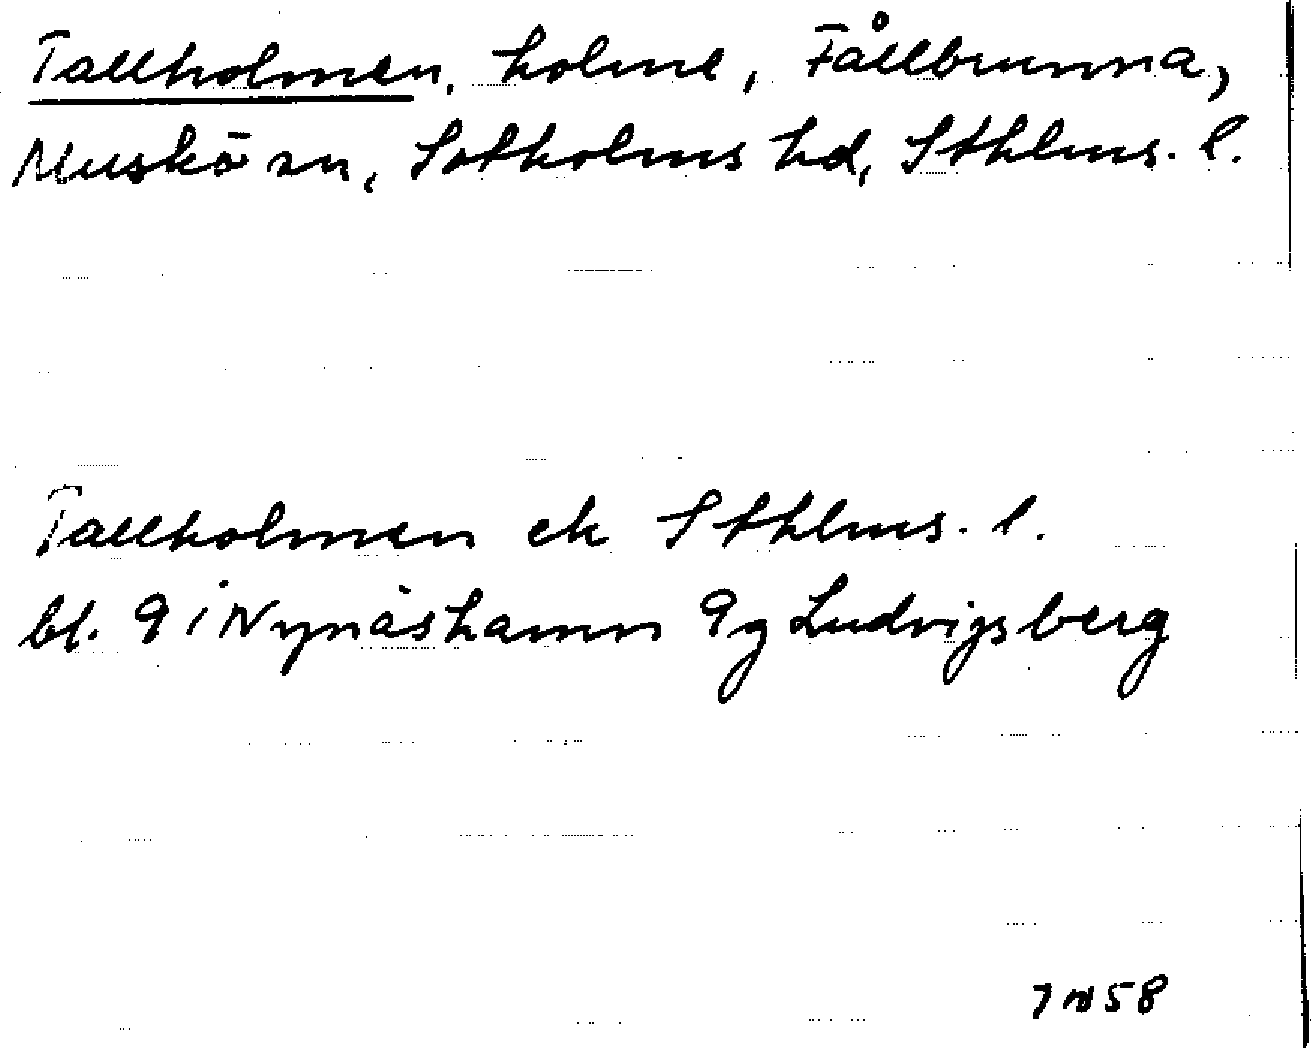 Tallholmen, holme, Fållbrunna,
Muskö sn, Sotholms hd, Sthlms. l.
Tallholmen ek Sthlms. l.
bl. 9 i Nynäshamn 9g Ludvigsberg